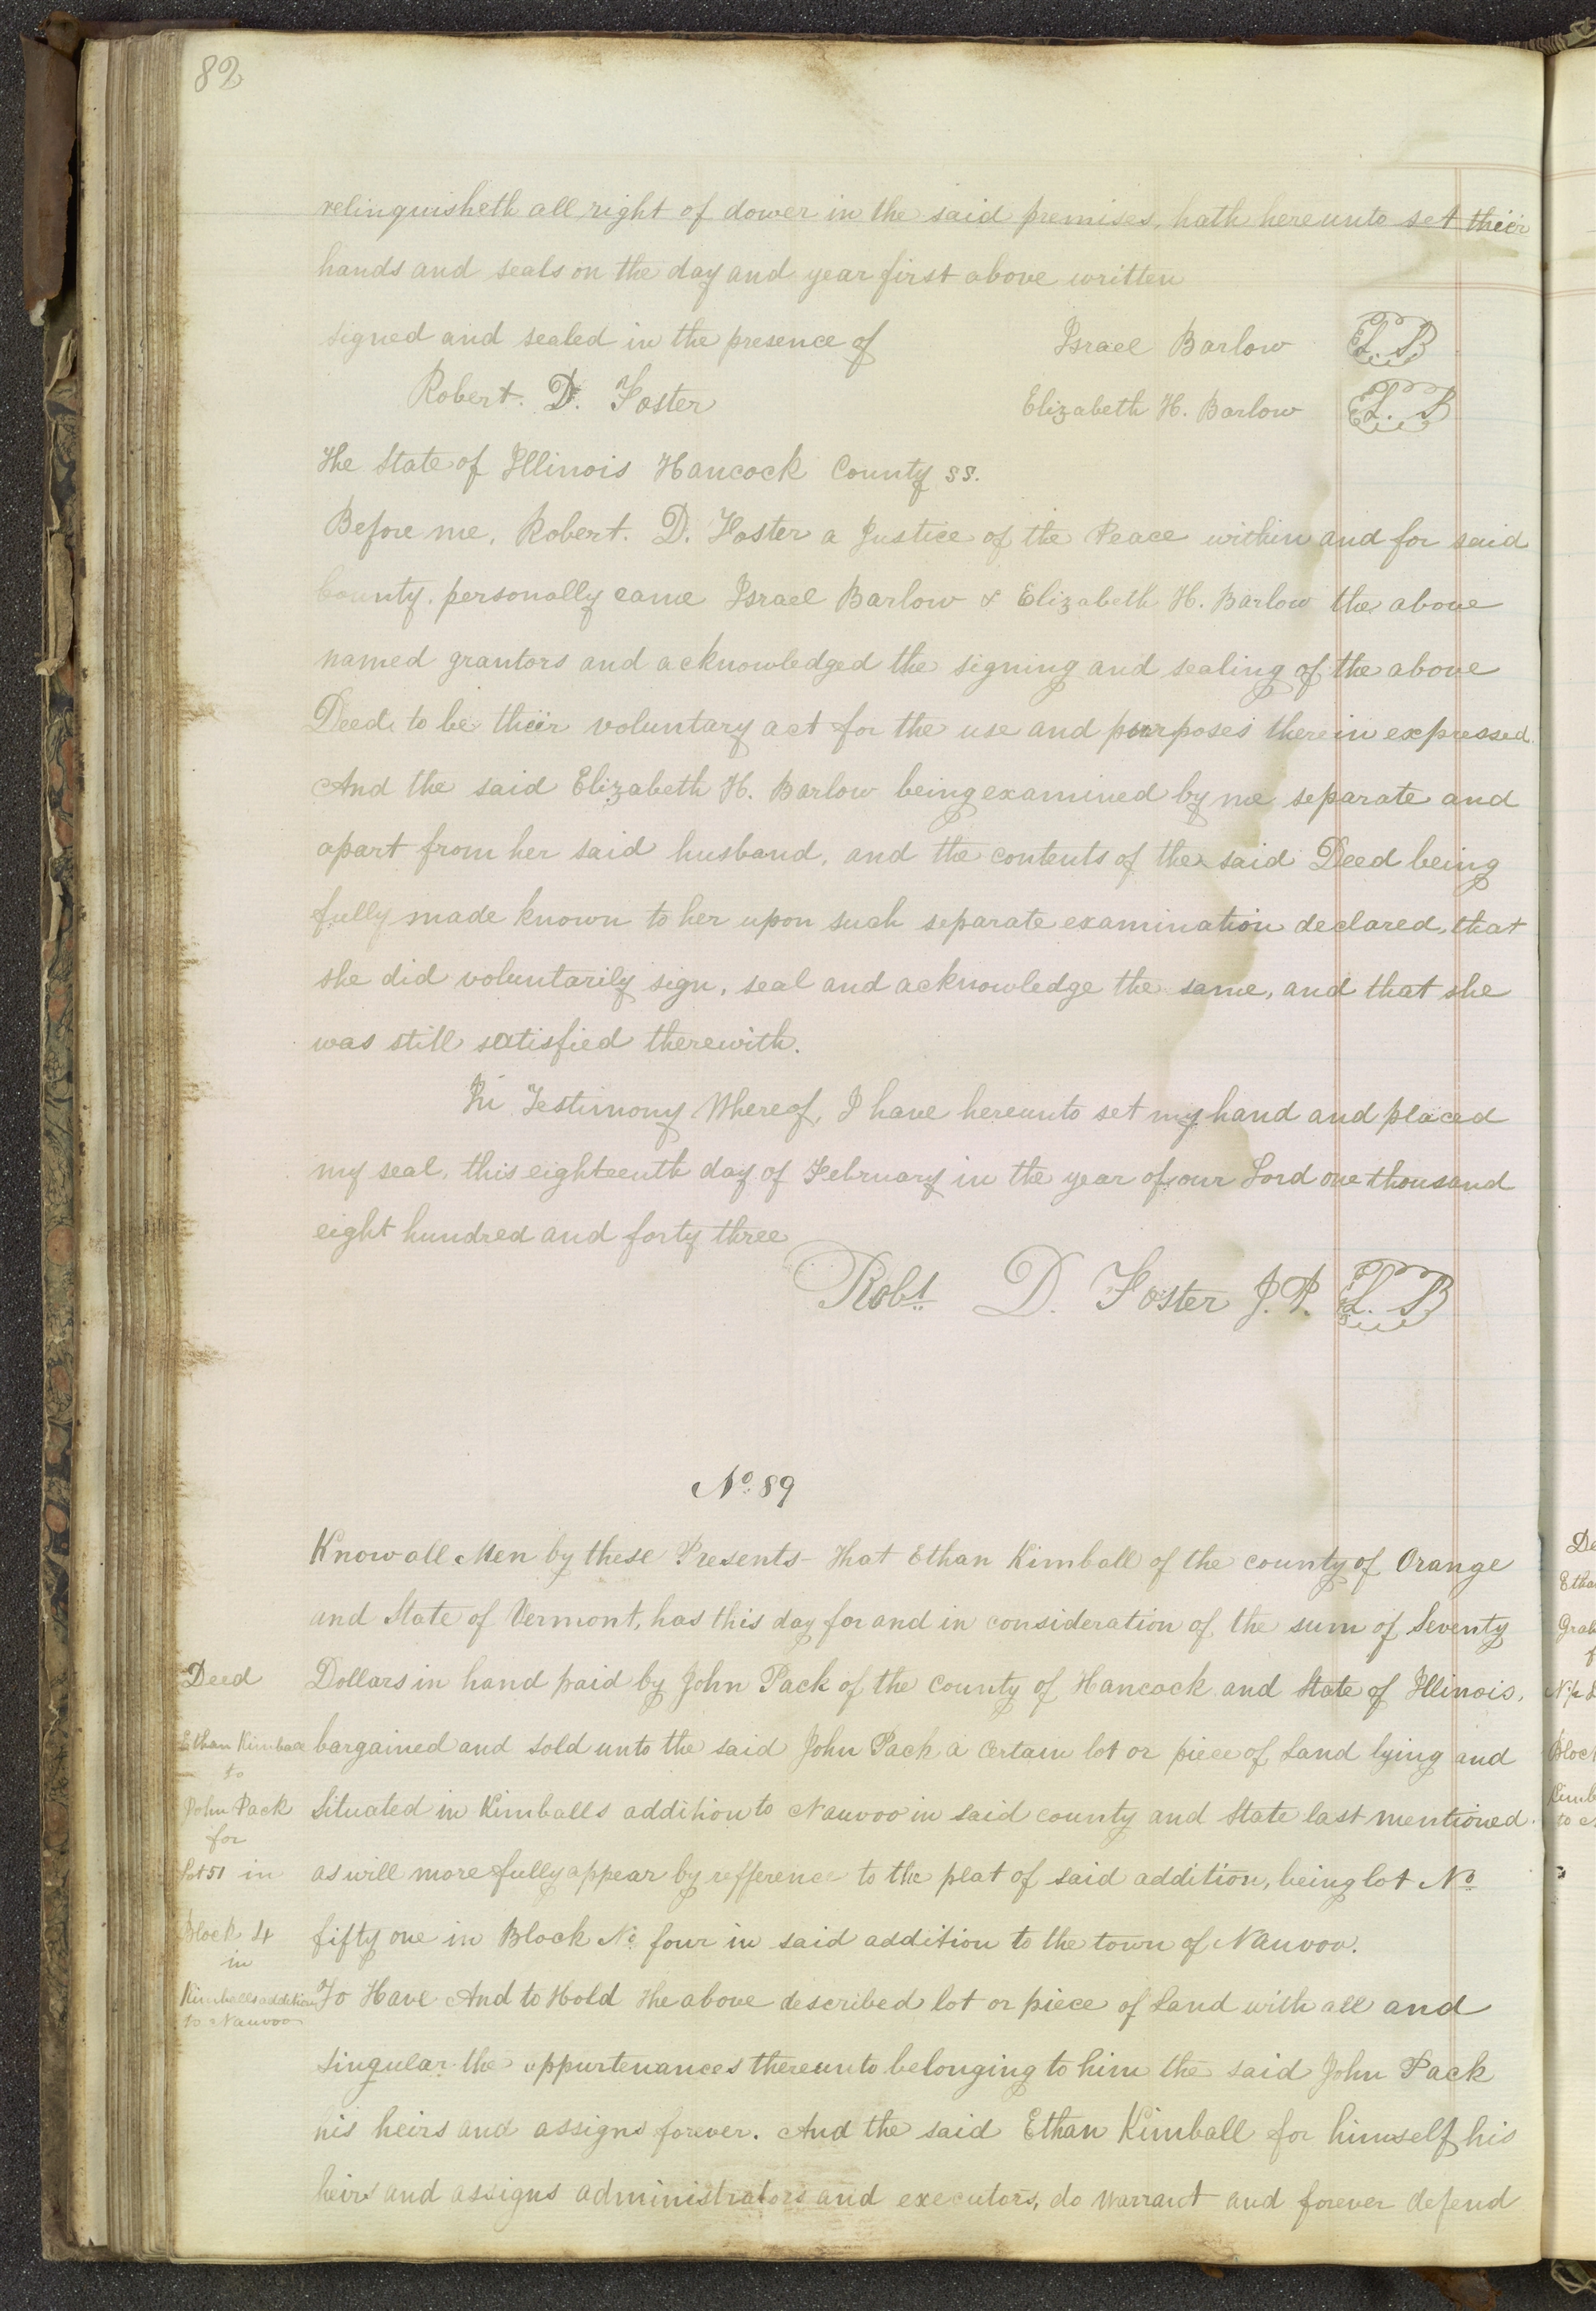 82
relinquisheth all right of dower in the said premises, hath hereunto set their
hands and seals on the day and year first above written
signed and sealed in the presence of Israel Barlow L.S
Robert. D. Foster Elizabeth H. Barlow L.S
The State of Illinois Hancock County ss.
Before me, Robert. D. Foster a Justice of the Peace within and for said
County. personally came Israel Barlow & Elizabeth H. Barlow the above
named grantors and acknowledged the signing and sealing of the above
Deed to be their voluntary act for the use and purposes therein expressed.
And the said Elizabeth H. Barlow being examined by me separate and
apart from her said husband, and the contents of the said Deed being
fully made known to her upon such separate examination declared, that
she did voluntarily sign, seal and acknowledge the same, and that she
was still satisfied therewith.
In Testimony Whereof, I have hereunto set my hand and placed
my seal, this eighteenth day of February in the year of our Lord one thousand
eight hundred and forty three
Robt. D. Foster J.P. L.S
No. 89
Know all Men by these Presents- That Ethan Kimball of the county of Orange
and State of Vermont, has this day for and in consideration of the sum of Seventy
Deed Dollars in hand paid by John Pack of the County of Hancock and State of Illinois,
Ethan Kimball bargained and sold unto the said John Pack a certain lot or piece of Land lying and
to
John Pack Situated in Kimballs addition to Nauvoo in said county and State last mentioned.
for
Lot 51 in as will more fully appear by refference to the plat of said addition, being lot No
Block 4 fifty one in Block No four in said addition to the town of Nauvoo.
in
Kimballs addition To Have And to Hold The above described lot or piece of Land with all and
to Nauvoo
singular the appurtenances thereunto belonging to him the said John Pack
his heirs and assigns forever. And the said Ethan Kimball for himself his
heirs and assigns administrators and executors, do warrant and forever defend